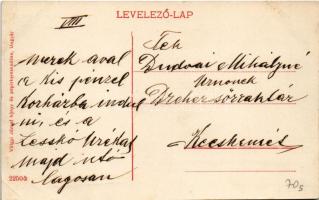 VIII
LEVELEZŐ-LAP
merek aval
a kis pénzel
Korházba indul
ni, és a
majd utó
lagosan
Tek
Dudvai Mihályné
Urnonek
Dreher sörraktár
Kecskemét
22508